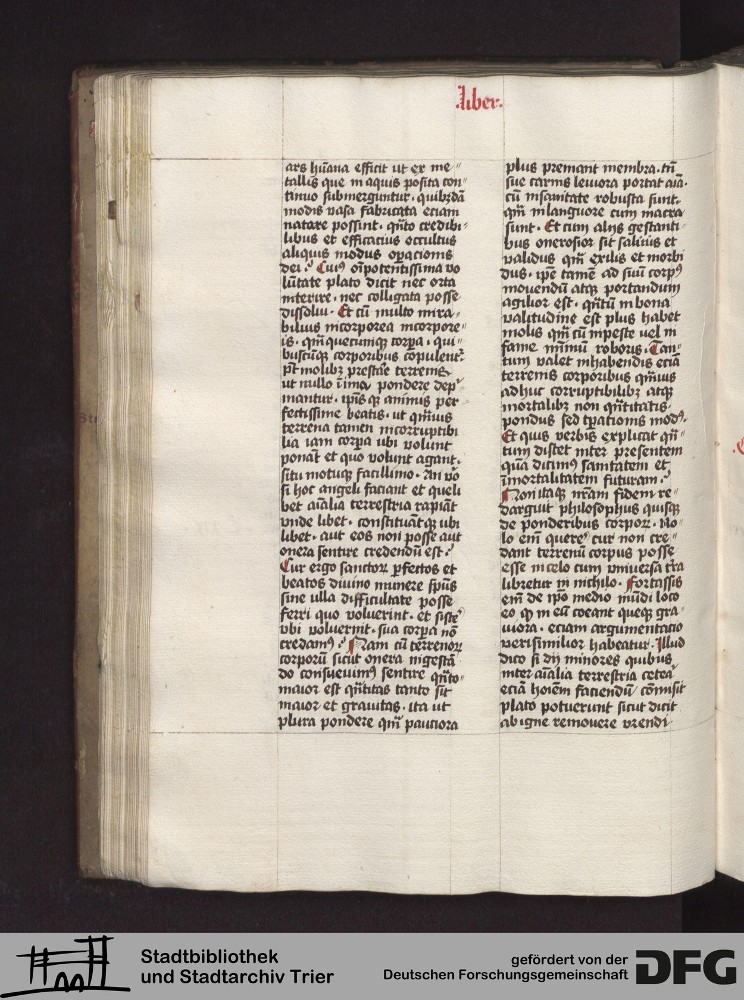 liber.
ars hūana efficit ut ex me〃
tallis que in aquis posita con〃
tinuo submerguntur. quibusdā
modis vasa fabricata eciam
natare possint. qūto credibi〃
libus et efficacius occultus
aliquis modus operacionis
dei. Cuiꝰ oīpotentissima vo
lūtate plato dicit nec orta
interire. nec colligata posse
dissolui. Et cū multo mira〃
bilius incorporea incorpore〃
is. qm̄ quecumque corpa. qui〃
buscūqꝫ corporibus copulent᷑
pt̄ molibꝫ prestāe terrenis
ut nullo īima pondere dep〃
mantur. ipīsqꝫ animis per
fectissime beatis. ut qm̄uis
terrena tamen incorruptibi
lia iam corpa ubi volunt
ponāt et quo volunt agant.
situ motuqꝫ facillimo. An vō
si hoc angeli faciant et queli
bet aīalia terrestria rapiāt
vnde libet. constituātqꝫ ubi
libet. aut eos non posse aut
onera sentire credendū est.
Cur ergo sanctoꝝ pfectos et
beatos diuino munere sp̄us
sine ulla difficultate posse
ferri quo voluerint. et sistē
vbi voluerint. sua corpa nō
credamꝰ. Nam cū terrenoꝝ
corporū sicut onera in gestā〃
do consueuimꝰ sentire qn̄to〃
maior est qn̄titas tanto sit
maior et grauitas. ita ut
plura pondere qm̄ pauciora
plus premant membra. tn̄
sue carnis leuiora portat aīa.
cū in sanitate robusta sunt.
qm̄ in languore cum macra
sunt. Et cum alijs gestanti〃
bus onerosior sit salious et
validus qm̄ exilis et morbi
dus. ipē tamē ad suū corpꝰ
mouendū atqꝫ portandum
agilior est. qn̄tū in bona
valitudine est plus habet
molis qm̄ cū in peste vel in
fame mīmū roboris. Tan〃
tum valet in habendis eciā
terrenis corporibus qm̄uis
adhuc corruptibilibꝫ atqꝫ
mortalibꝫ non qn̄titatis
pondus sed tpationis modꝰ.
Et quis verbis explicat qn̄〃
tum distet inter presentem
quā dicimꝰ sanitatem et
īmortalitatem futuram.
Non itaqꝫ nr̄am fidem re〃
darguit philosophus quisqꝫ
de ponderibus corpoꝝ. No〃
lo eī querē cur non cre〃
dant terrenū corpus posse
esse in celo cum vniuersa tr̄a
libretur in nichilo. Fortassis
eī de ipō medio mūdi loco
eo qꝫ in eū coeant queqꝫ gra〃
uiora. eciam argumentacio
verisimilior habeatur. Illud
dico si dij minores quibus
inter aīalia terrestria cetea
eciā hoīem faciendū cōmisit
plato potuerunt sicut dicit
ab igne remouere vrendi
Stadtbibliothek
und Stadtarchiv Trier
gefördert von der
Deutschen Forschungsgemeinschaft
DFG